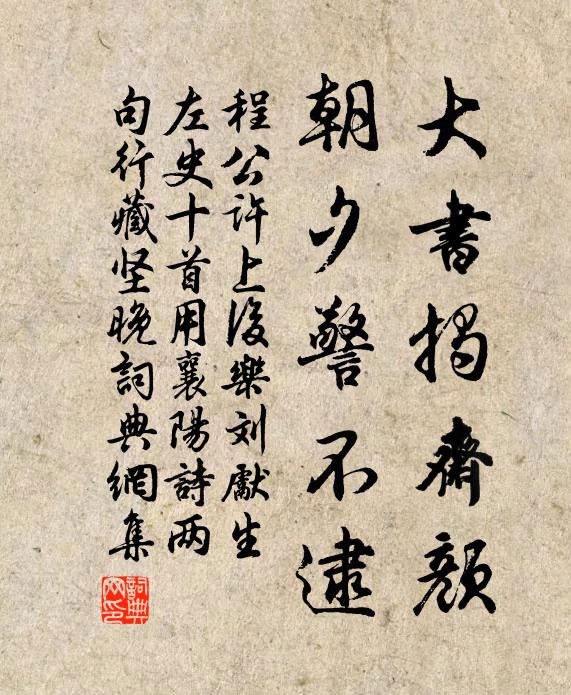 大書揭齋顏
朝夕警不逮
程公許上後樂刘獻生
左史十首用襄陽詩两
句行藏坚晚詞典網集
詞典
网印